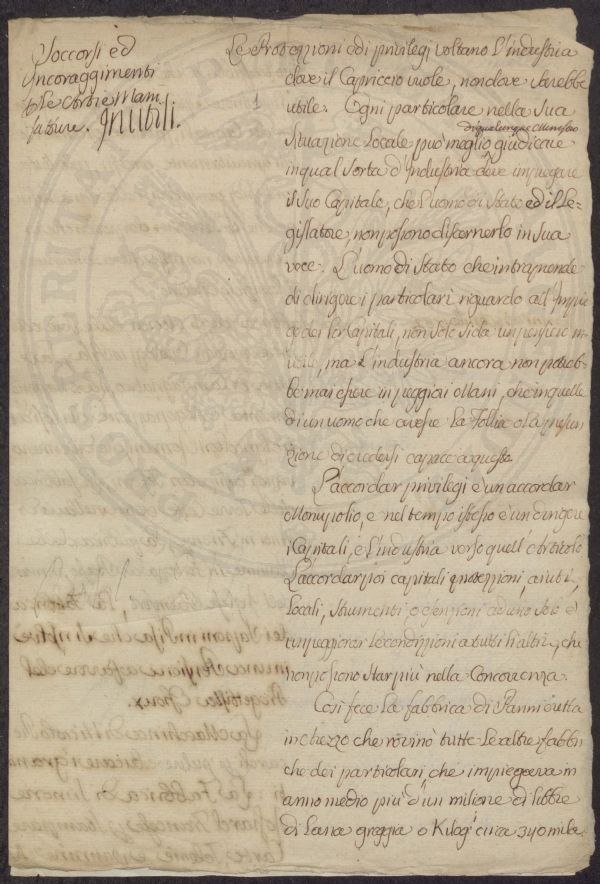 Soccorsi ed
Incoraggimenti
p le Arti e Mani
fatture. Inutili.
1
Le Protezzioni ed i privilegi voltano l'industria
dove il Capriccio vuole, non dove sarebbe
utile. Ogni particolare nella Sua
di qualunque Ministro
Situazione Locale può meglio giudicare
in qual sorta d'Industria deve impiegare
il Suo Capitale, che l'uomo di Stato ed il Le-
gislatore, non possono discernerlo in Sua
voce. L'uomo di Stato che intraprende
di dirigere i particolari riguardo all'Impie
go dei lor Capitali, non solo si dà un pensiero in-
utile, ma l'industria ancora non potreb-
be mai essere in peggiori Mani, che in quelle
di un uomo che avesse la follia o la presun
zione di credersi capace a questo.
L'accordar privilegi è un accordar
Monopolio, e nel tempo istesso è un dirigere
i Capitali, e l'industria verso quell'Articolo
L'accordar poi capitali protezzioni, aiuti,
Locali, Strumenti o esenzioni ad uno solo è
un peggiorar le condizzioni a tutti li altri, che
non possono star più nella Concorrenza.
Così fece la fabbrica di Panni eretta
in che rovinò tutte le altre fabbri
che dei particolari, che impiegava in
anno medio più d'un milione di libbre
di Lana greggia o Kilogi circa 340 mila.